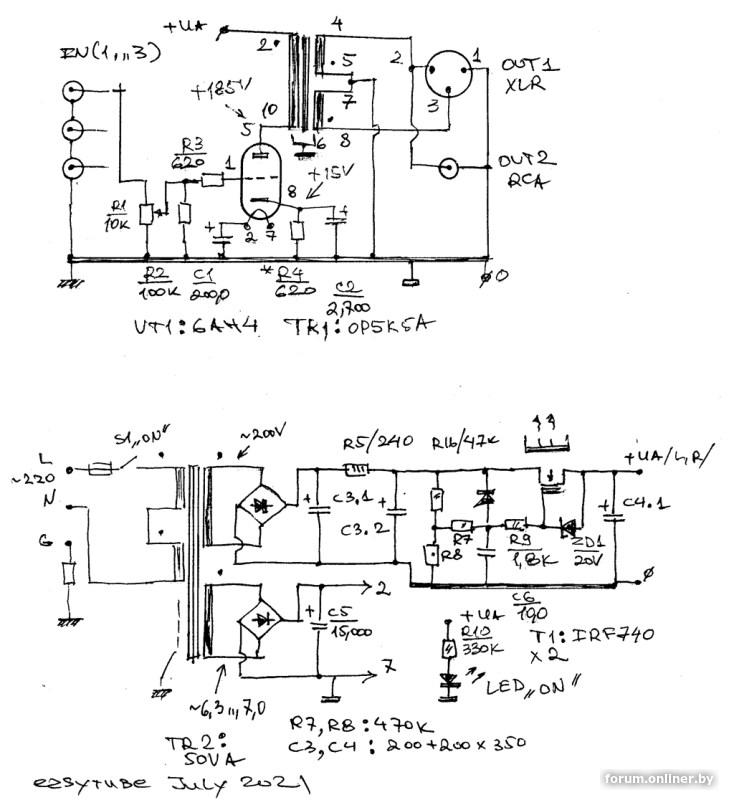 +UA
4
IN(1,,,3)
2
5
2
1
OUT1
XLR
+185V
7
3
10
5
6
8
R3
620
1
+15V
OUT2
RCA
8
R1
10K
2
7
0
R2
100K
C1
200,0
*R4
620
C2
2,700
VT1: 6AH4 TR1: OP5K5A
S1„ON"
~200V
R5/240
R16/47K
L
~220
+UA/L,R/
N
C3.1
C4.1
C3.2
R7
G
R8
R9
1,8K
ZD1
20V
2
C6
1,0
C5
15,000
+UA
R10
330K
T1: IRF740
x2
7
LED„ON"
~6,3,,,7,0
R7, R8: 470K
TR2:
50VA
C3, C4: 200+200x350
ezsytube July 2021
forum.onliner.by